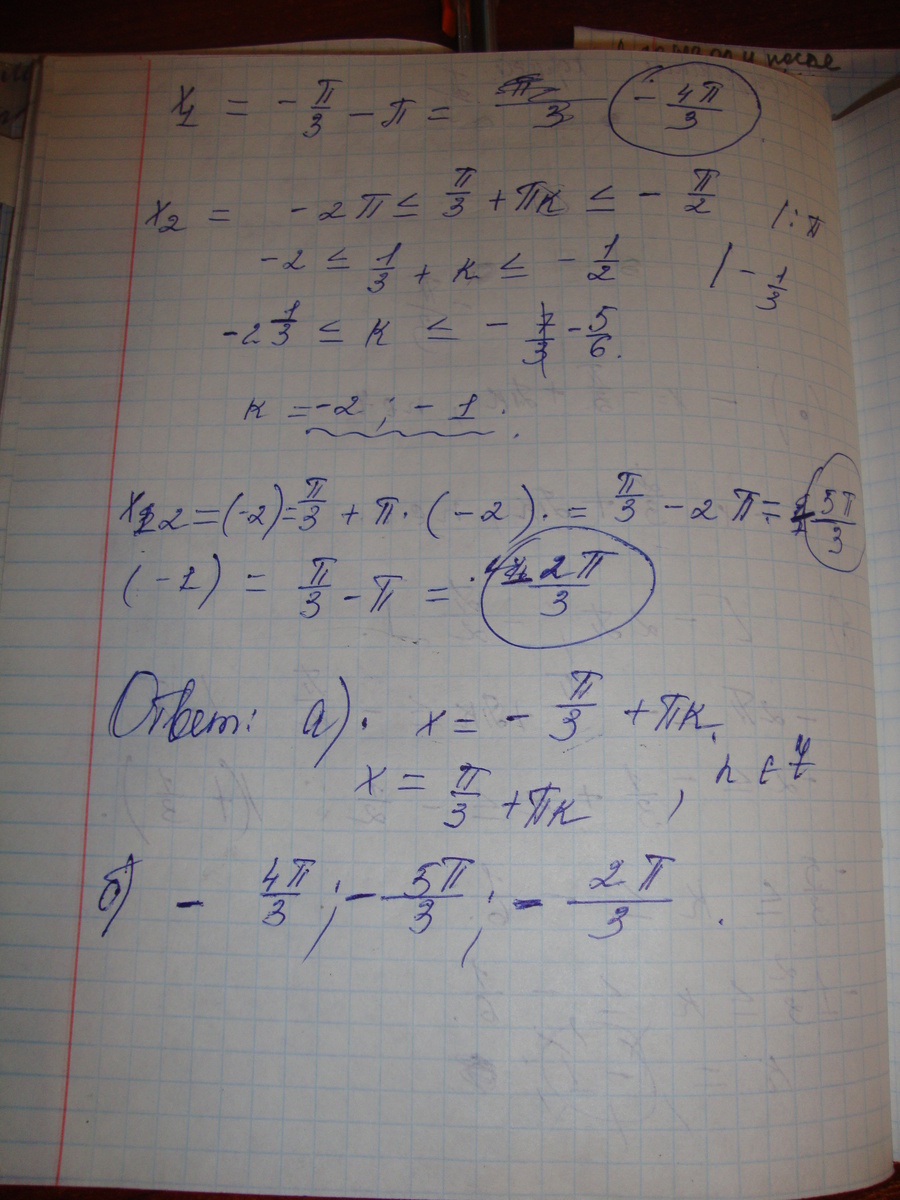 x₁ = - π/3 - π = - 4π/3
x₂ = - 2π ≤ π/3 + πк ≤ - π/2 | : π
-2 ≤ 1/3 + к ≤ - 1/2 | - 1/3
-2 1/3 ≤ к ≤ - 5/6.
к = -2 ; - 1 .
x₂ = (-2) = π/3 + π · (-2) · = π/3 - 2π = - 5π/3
(-1) = π/3 - π = - 2π/3
Ответ: а). x = - π/3 + πк.
x = π/3 + πк , n ∈ Z
б) - 4π/3 ; - 5π/3 ; - 2π/3 .